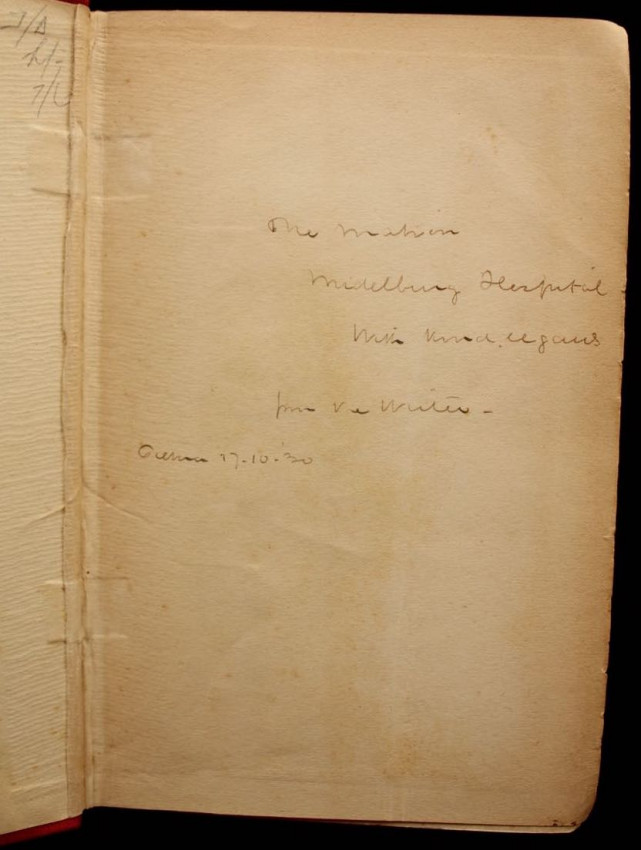 The Matron
Midelburg Hospital
With kind regards
from the Writer -
17.10.30